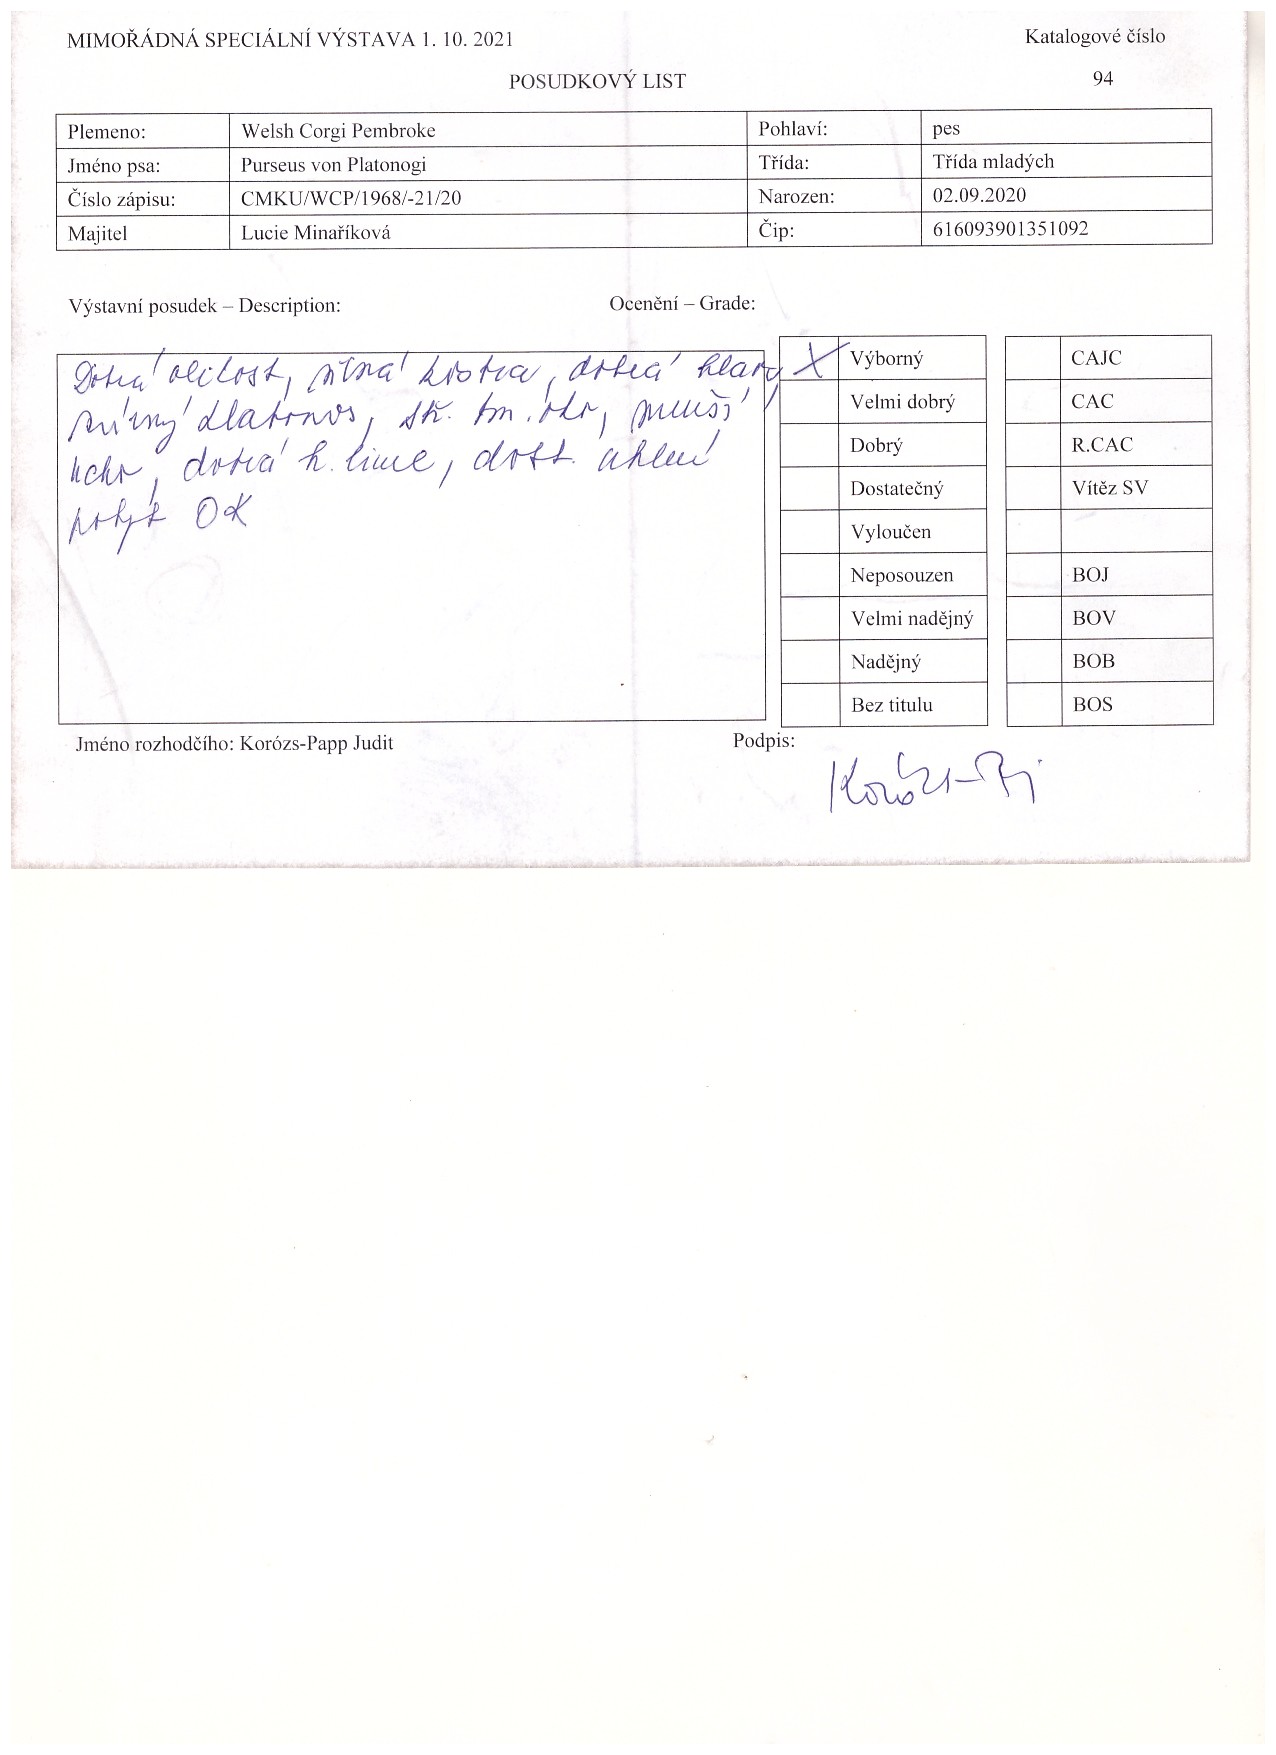 MIMOŘÁDNÁ SPECIÁLNÍ VÝSTAVA 1. 10. 2021
Katalogové číslo
POSUDKOVÝ LIST
94
Plemeno: Welsh Corgi Pembroke Pohlaví: pes
Jméno psa: Purseus von Platonogi Třída: Třída mladých
Číslo zápisu: CMKU/WCP/1968/-21/20 Narozen: 02.09.2020
Majitel Lucie Minaříková Čip: 616093901351092
Výstavní posudek – Description:
Ocenění – Grade:
Dobrá velikost, silná kostra, dobrá hlava,
mírný klabonos, stř. tm. oko, menší
ucho, dobrá h. linie, dost. úhlení
pohyb OK
X Výborný
Velmi dobrý
Dobrý
Dostatečný
Vyloučen
Neposouzen
Velmi nadějný
Nadějný
Bez titulu
CAJC
CAC
R.CAC
Vítěz SV
BOJ
BOV
BOB
BOS
Jméno rozhodčího: Korózs-Papp Judit
Podpis: